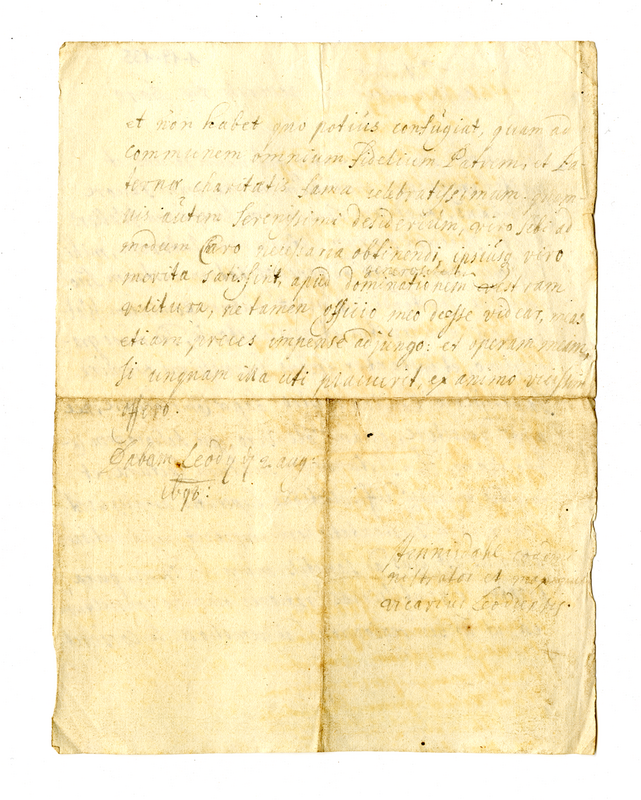 et non habet quo potius confugiat, quam ad
communem omnium fidelium Patrem, et Pa
ternæ charitatis fama celebratissimum. quam-
uis autem Serenissimi desiderium, viro sibi ad
modum Caro necessaria obtinendi, ipsiusq viro
merita satis sint, apud dominationem vestram
valitura, ne tamen officio meo deesse videar, meas
etiam preces impense adjungo: et operam meam,
si unquam illa uti placuerit, ex animo vicissim
offero.
Dabam Leodij 2 aug
vicarius Leodiensis.